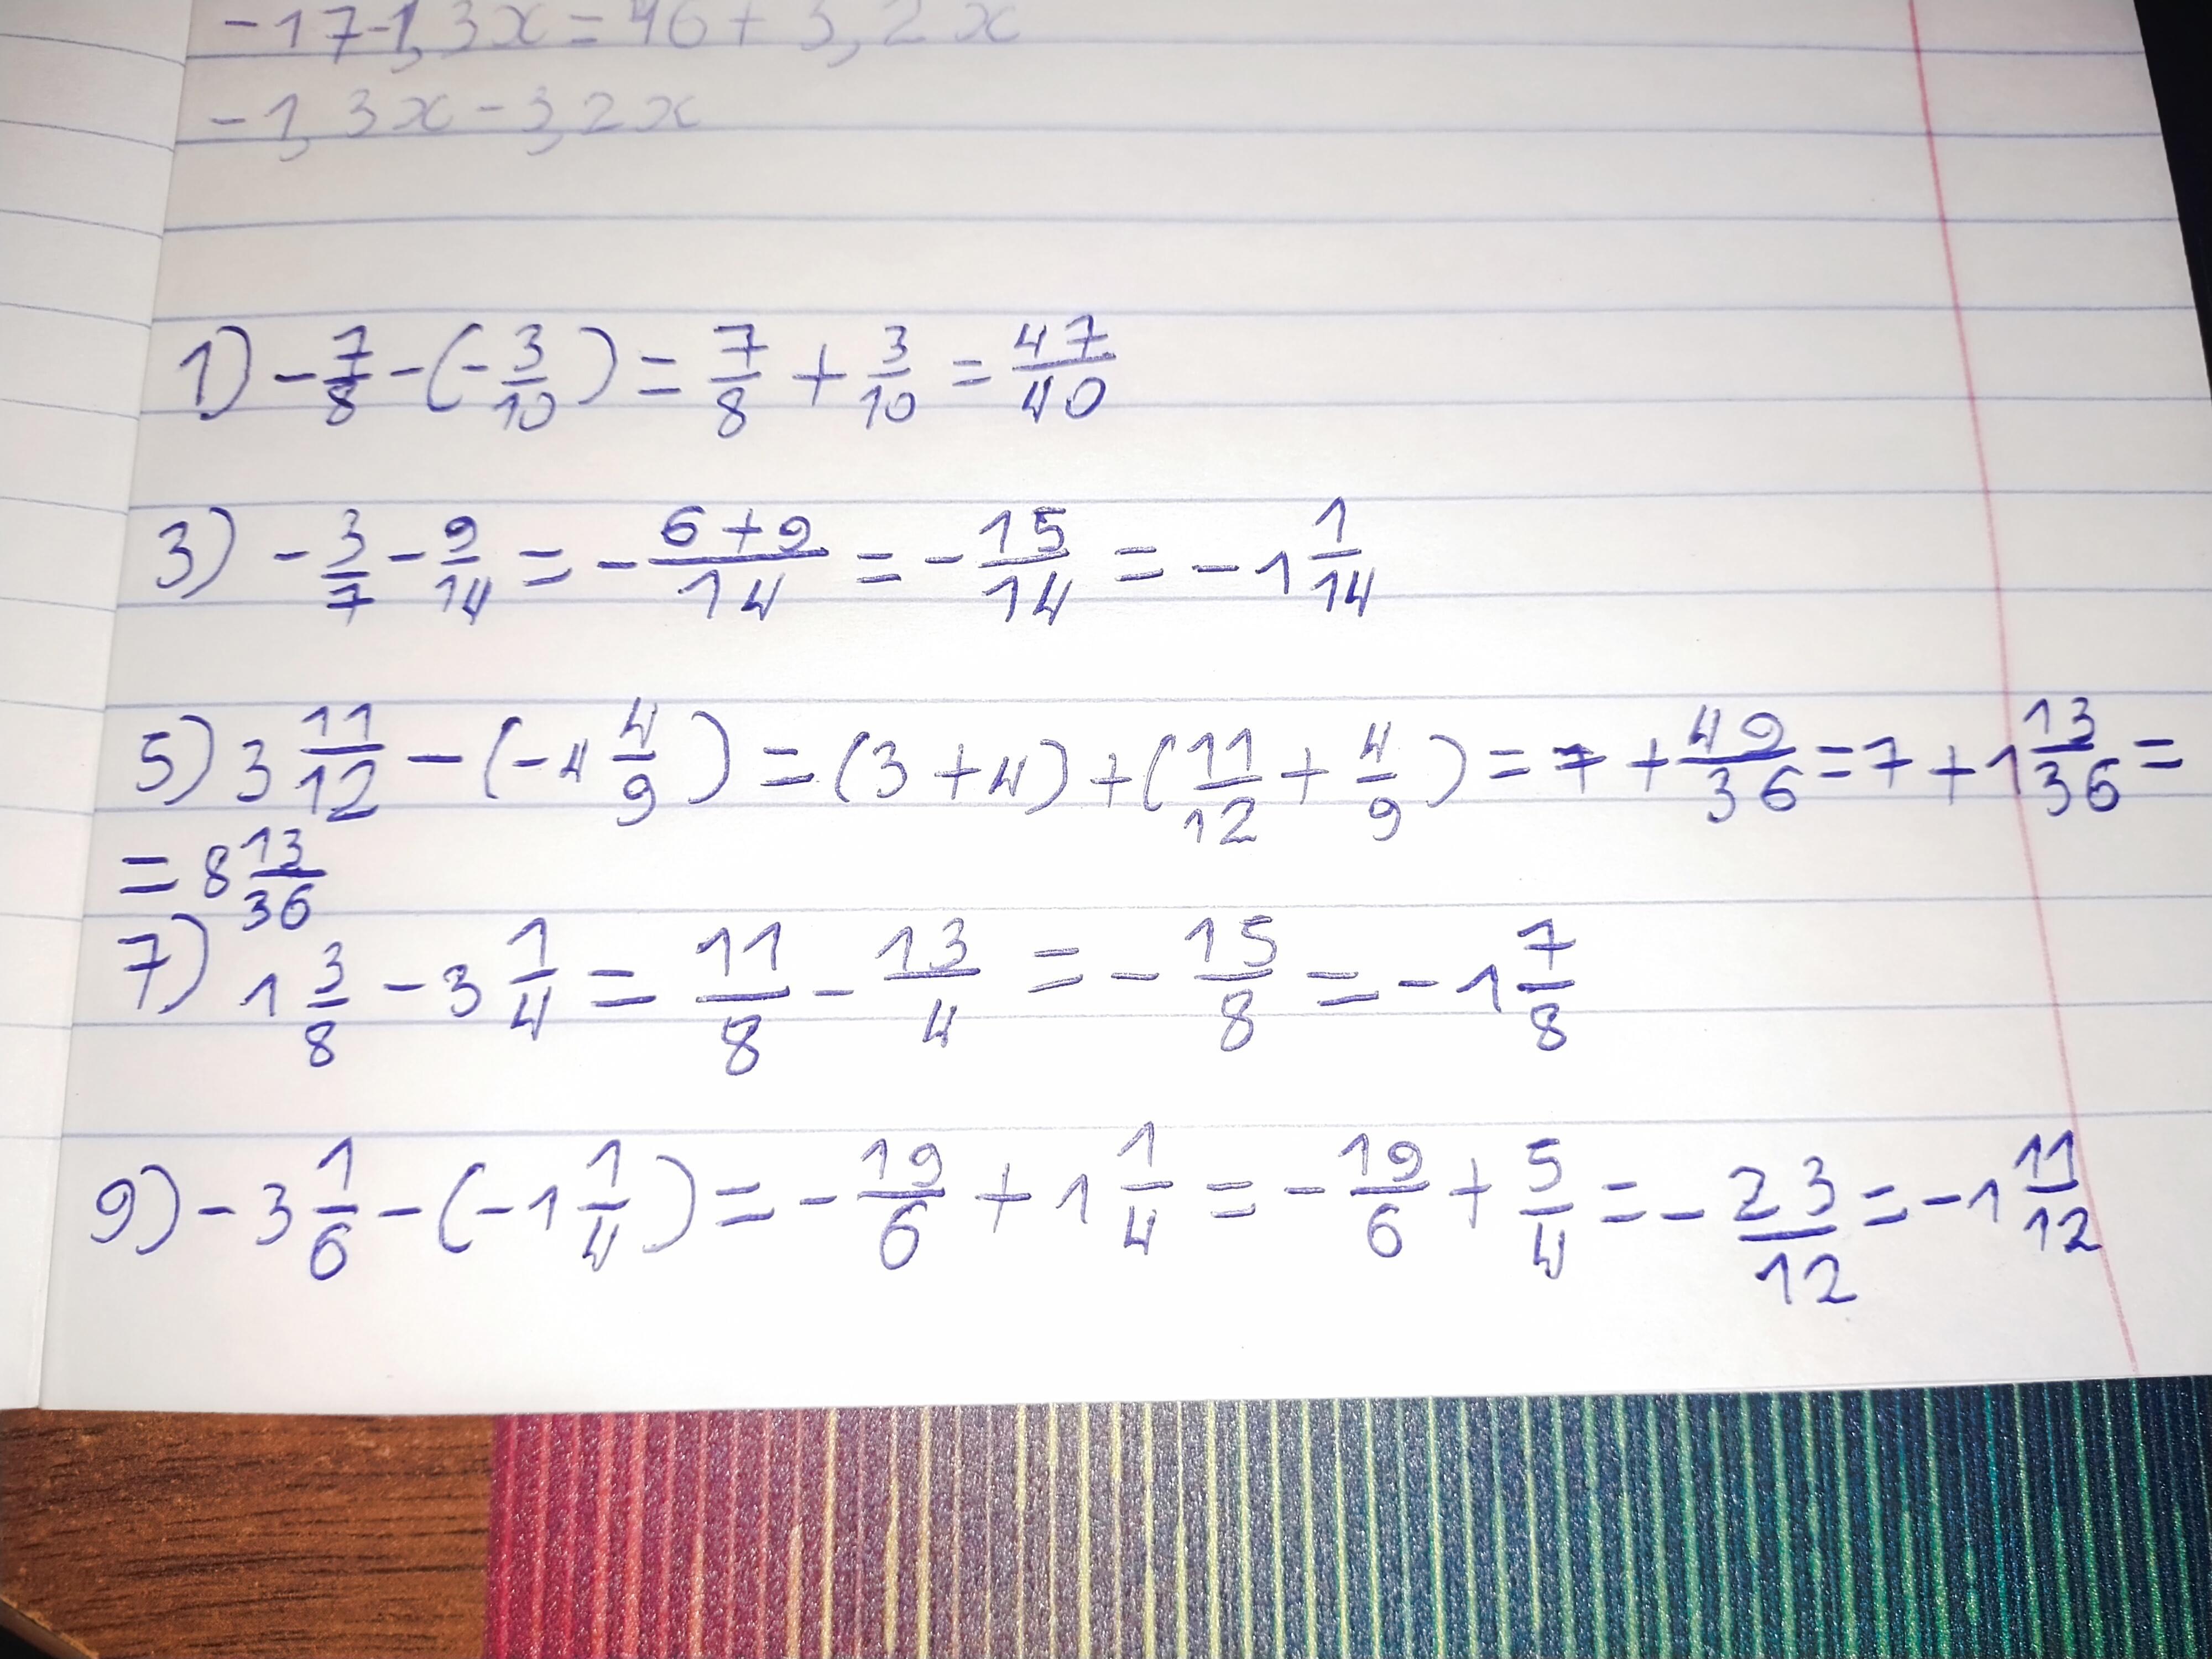 -17-1,3x=46+3,2x
-1,3x-3,2x
1) -7/8-(-3/10)=7/8+3/10=47/40
3) -3/7-9/14=-6+9/14=-15/14=-1 1/14
5) 3 11/12-(-4 4/9)=(3+4)+(11/12+4/9)=7+49/36=7+1 13/36=
=8 13/36
7) 1 3/8-3 1/4=11/8-13/4=-15/8=-1 7/8
9) -3 1/6-(-1 1/4)=-19/6+1 1/4=-19/6+5/4=-23/12=-1 11/12